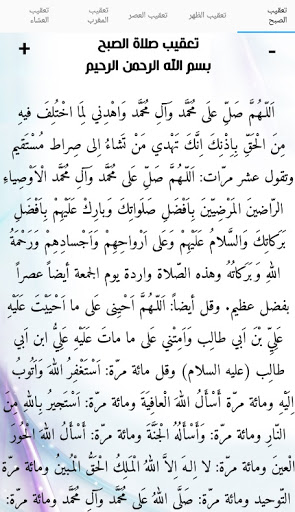 تعقيب الصبح
تعقيب الظهر
تعقيب العصر
تعقيب المغرب
تعقيب العشاء
تعقيب صلاة الصبح
+ -
بسم الله الرحمن الرحيم
اَللّهُمَّ صَلِّ عَلى مُحَمَّد وَآلِ مُحَمَّد وَاهْدِني لِمَا اخْتُلِفَ فيهِ
مِنَ الْحَقِّ بِاِذْنِكَ اِنَّكَ تَهْدي مَنْ تَشاءُ الى صِراط مُسْتَقيم
وتقول عشر مرات: اَللّهُمَّ صَلِّ عَلى مُحَمَّد وَآلِ مُحَمَّد الْاَوْصِياءِ
الرّاضينَ الْمَرْضِيّينَ بِاَفْضَلِ صَلَواتِكَ وَبارِكْ عَلَيْهِمْ بِاَفْضَلِ
بَرَكاتِكَ وَالسَّلامُ عَلَيْهِمْ وَعَلى اَرْواحِهِمْ وَاَجْسادِهِمْ وَرَحْمَةُ
اللهِ وَ بَرَكاتُهُ وهذه الصّلاة واردة يوم الجمعة أيضاً عصراً
بفضل عظيم. وقل أيضاً: اَللّهُمَّ اَحْيِني عَلى ما اَحْيَيْتَ عَلَيْهِ
عَلِيَّ بْنَ اَبي طالِب وَاَمِتْني عَلى ما ماتَ عَلَيْهِ عَلِيُّ ابن اَبي
طالِب (عليه السلام) وقل مائة مرّة: اَسْتَغْفِرُ اللهَ وَاَتُوبُ
اِلَيْهِ ومائة مرّة اَسْأَلُ اللهَ الْعافِيَةَ ومائة مرّة: اَسْتَجيرُ بِاللهِ مِنَ
النّارِ ومائة مرّة: وَاَسْأَلُهُ الْجَنَّةَ ومائة مرّة: اَسْأَلُ اللهَ الْحُورَ
الْعينَ ومائة مرّة: لا اِلـهَ اِلاَّ اللهُ الْمَلِكُ الْحَقُّ الْمُبينُ ومائة مرّة
التّوحيد ومائة مرّة: صَلَّى اللهُ عَلى مُحَمَّد وَآلِ مُحَمَّد ومائة مرّة: